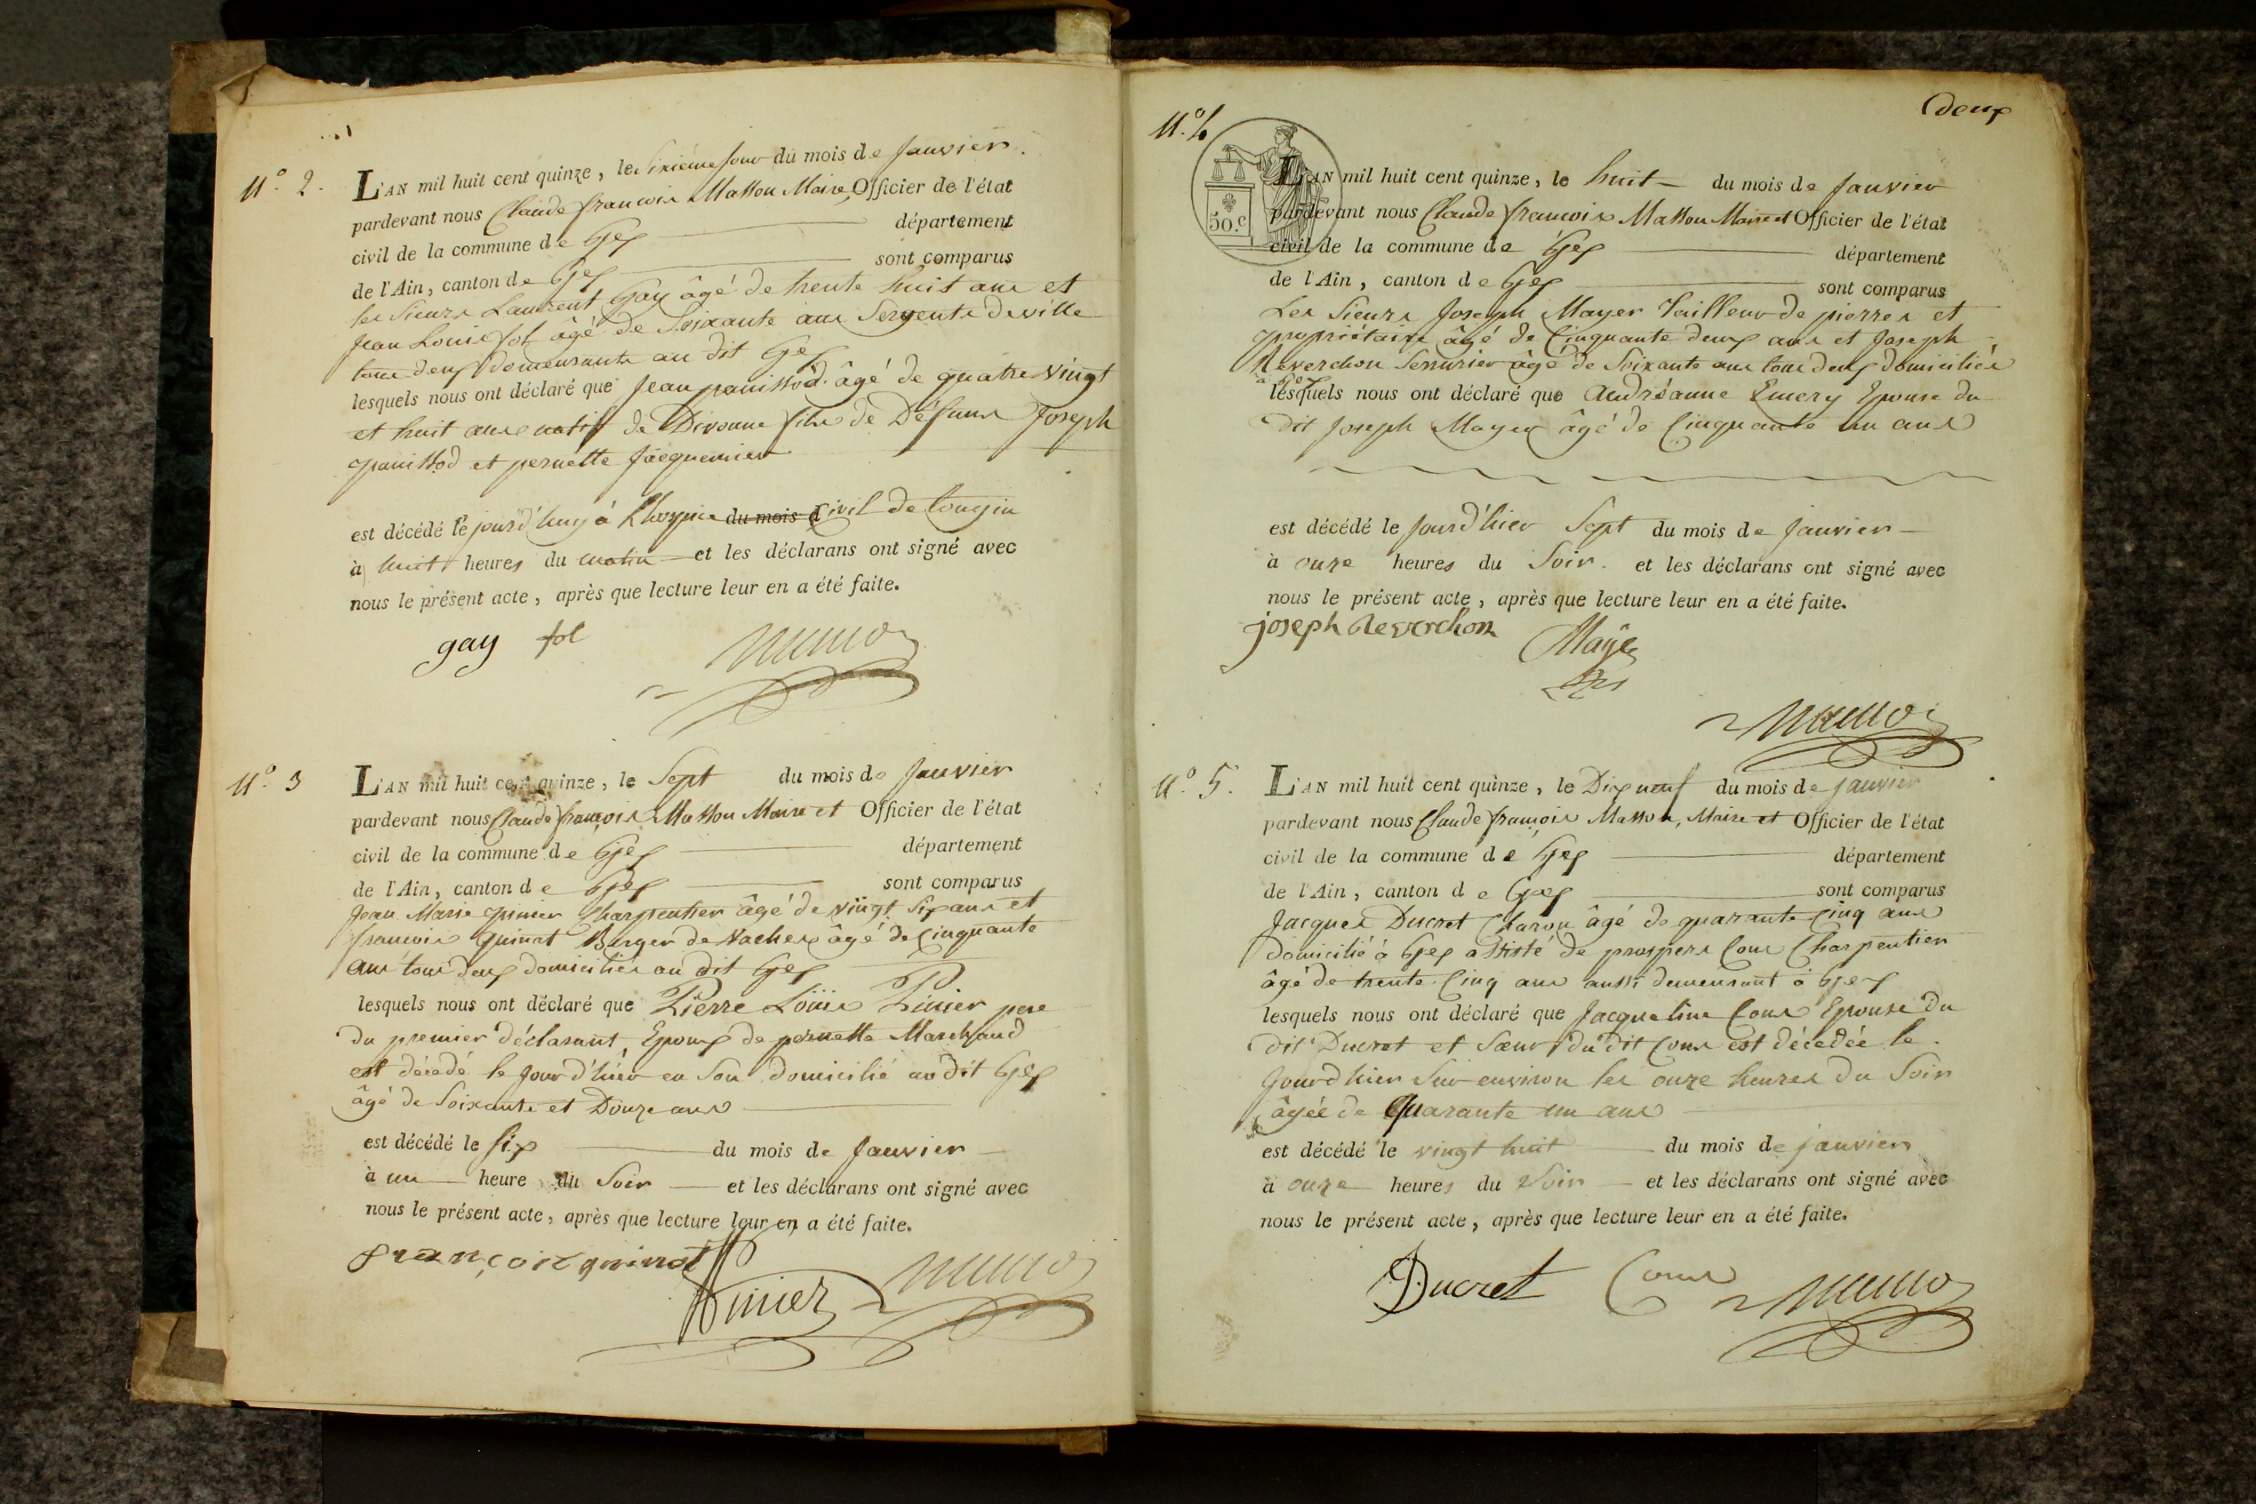 N.° 2.
L'AN mil huit cent quinze, le Sixième jour du mois de Janvier.
pardevant nous Claude françois Masson Maire, Officier de l'état
civil de la commune de Gex département
de l'Ain, canton de Gex sont comparus
les Sieurs Laurent Gay âgé de trente huit ans et
Jean Louis fol âgé de Soixante ans Sergents de ville
tous deux demeurants au dit Gex
lesquels nous ont déclaré que Jean panissod âgé de quatre vingt
et huit ans natif de Divonne fils de Défunt Joseph
panissod et pernette Jacquemier
est décédé le jourd'huy à l'hospice du mois d Civil de tougin
à huit heures du matin et les déclarans ont signé avec
nous le présent acte, après que lecture leur en a été faite.
gay fol
N.° 3
L'AN mil huit cent quinze, le Sept du mois de Janvier
pardevant nous Claude françois Masson Maire et Officier de l'état
civil de la commune de Gex département
de l'Ain, canton de Gex sont comparus
Jean Marie pinier Charpentier âgé de vingt Six ans et
françois quinat Berger de Vaches âgé de Cinquante
ans tous deux domiciliés au dit Gex
lesquels nous ont déclaré que Pierre Loüis Pinier pere
du premier déclarant, Epoux de pernette Marchand
est décédé le jour d'hier en Son domicilié au dit Gex
âgé de Soixante et Douze ans
est décédé le Six du mois de Janvier
à un heure du Soir et les déclarans ont signé avec
nous le présent acte, après que lecture leur en a été faite.
françois quinat
Pinier
deux
N.° 4
50.C
L'AN mil huit cent quinze, le huit du mois de Janvier
pardevant nous Claude françois Masson Maire et Officier de l'état
civil de la commune de Gex département
de l'Ain, canton de Gex sont comparus
Les Sieurs Joseph Mayer Tailleur de pierres et
propriétaire âgé de Cinquante deux ans et Joseph
Reverchon Serrurier âgé de Soixante ans tous deux domiciliés
à Gex
lesquels nous ont déclaré que Andréanne Emery Epouse du
dit Joseph Mayer âgé de Cinquante un ans
est décédé le jourd'hier Sept du mois de Janvier
à onze heures du Soir. et les déclarans ont signé avec
nous le présent acte, après que lecture leur en a été faite.
joseph Reverchon
Maÿer
N.° 5.
L'AN mil huit cent quinze, le Dix neuf du mois de janvier
pardevant nous Claude françois Masson, Maire et Officier de l'état
civil de la commune de Gex département
de l'Ain, canton de Gex sont comparus
Jacques Ducret Charon âgé de quarante Cinq ans
domicilié à Gex assisté de prospere Charpentier
âgé de trente Cinq ans aussi demeurant à Gex
lesquels nous ont déclaré que Jacqueline Epouse du
dit Ducret et Sœur du dit est décédée le
jourd hier Sur environ les onze heures du Soir
âgée de Quarante un ans
est décédé le vingt huit du mois de janvier
à onze heures du Soir et les déclarans ont signé avec
nous le présent acte, après que lecture leur en a été faite.
Ducret